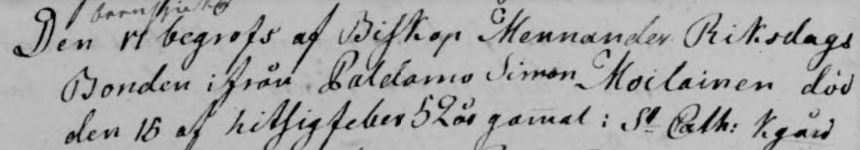 Den 17 begrofs af Biskop Mennander Riksdags
Bonden ifrån Paldamo Simon Moilainen död
den 15 af hitsigfeber 52 år gamal: St Cath: Kgård